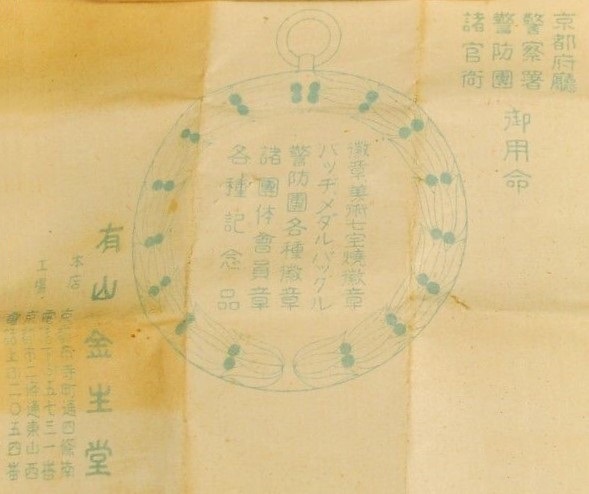 京都府廳
警察署
警防團
諸官衙
御用命
徽章美術七宝燒徽章
バッヂメダルバックル
警防團各種徽章
諸團体會員章
各種記念品
有山金生堂
本店
寺町通四條南
五七三一番
工場
京都市二條通東山西
二〇五四番